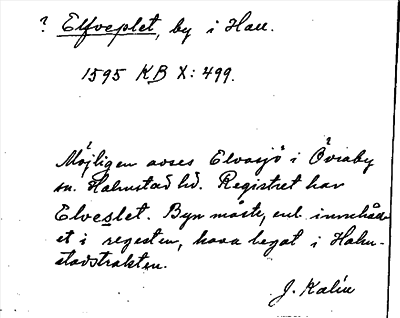 ? Elfveplet, by i Hall.
1595 KB X: 499.
Möjligen avses Elvasjö i Övraby
sn. Halmstad hd. Registret har
Elveslet. Byn måste, enl. innehåll-
et i regesten, hava legat i Halm-
stadstrakten.
J. Kalén